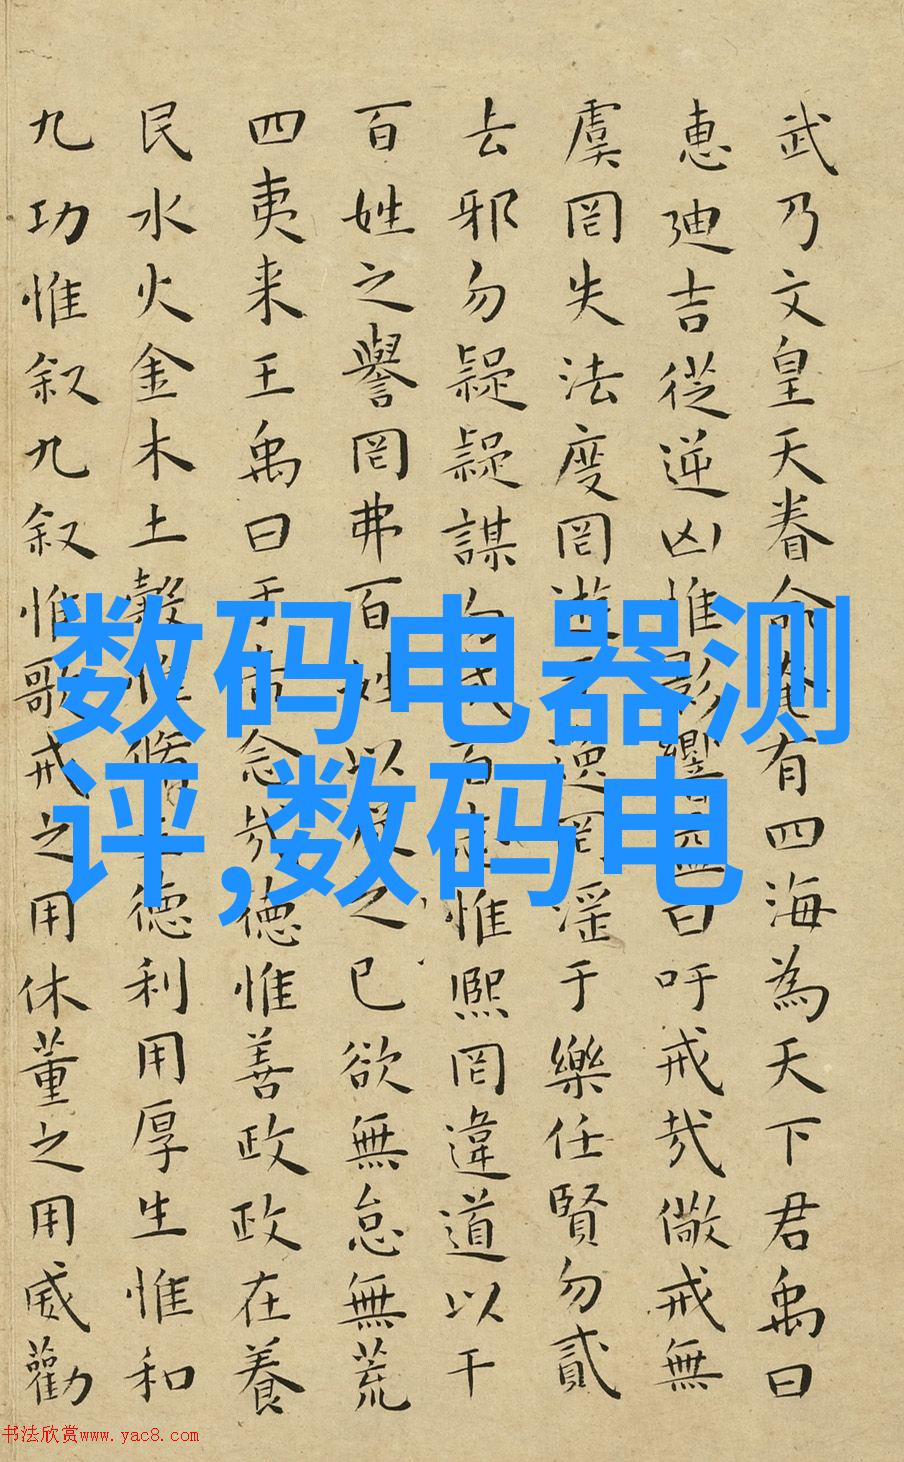 武乃文皇天眷命奄有四海為天下君禹曰
惠廸吉從逆凶惟影響益曰吁戒哉儆戒無
虞罔失法度罔遊于逸罔淫于樂任賢勿貳
去邪勿疑疑謀勿成百志惟熙罔違道以干
百姓之譽罔弗百姓以從之已欲無怠無荒
四夷来王禹曰于帝念哉德惟善政政在養
民水火金木土穀惟脩正德利用厚生惟和
九功惟叙九叙惟歌戒之用休董之用威勸
数码电器测
评,数码电
书法欣赏www.yac8.com